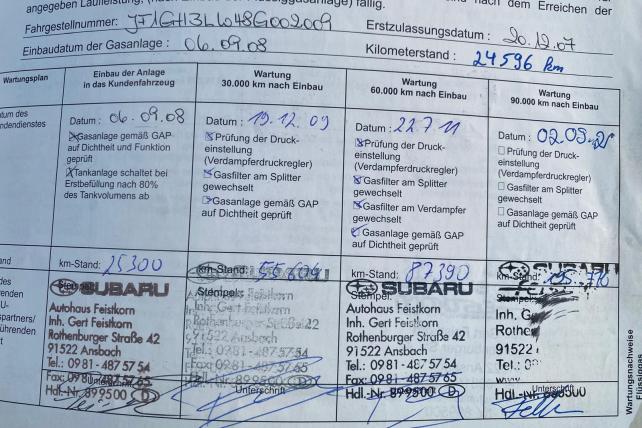 angegeben Laufleistung,
nach dem Erreichen der
Fahrgestellnummer: JF1GH3LW48G002009 Erstzulassungsdatum: 20.12.07
Einbaudatum der Gasanlage: 06.09.08 Kilometerstand: 24596 km
Wartungsplan
Einbau der Anlage
in das Kundenfahrzeug
Wartung
30.000 km nach Einbau
Wartung
60.000 km nach Einbau
Wartung
90.000 km nach Einbau
Datum: 06.09.08
Gasanlage gemäß GAP
auf Dichtheit und Funktion
geprüft
Tankanlage schaltet bei
Erstbefüllung nach 80%
des Tankvolumens ab
Datum: 19.12.09
Prüfung der Druck-
einstellung
(Verdampferdruckregler)
Gasfilter am Splitter
gewechselt
Gasanlage gemäß GAP
auf Dichtheit geprüft
Datum: 22.7.11
Prüfung der Druck-
einstellung
(Verdampferdruckregler)
Gasfilter am Splitter
gewechselt
Gasfilter am Verdampfer
gewechselt
Gasanlage gemäß GAP
auf Dichtheit geprüft
Datum:
Prüfung der Druck-
einstellung
(Verdampferdruckregler)
Gasfilter am Splitter
gewechselt
Gasanlage gemäß GAP
auf Dichtheit geprüft
km-Stand: 25300
km-Stand:
km-Stand: 87390
SUBARU
Autohaus Feistkorn
Inh. Gert Feistkorn
Rothenburger Straße 42
91522 Ansbach
Tel.: 0981-4875754
Fax: 0981-4875765
Unterschrift
Hdl.-Nr. 899500 D
Stempel:
Inh. Gert Feistkorn
Rothenburger Straße 42
91522 Ansbach
Tel.: 0981-4875754
Fax: 0981-4875765
Hdl.-Nr. 899500 D
Unterschrift
SUBARU
Stempel:
Autohaus Feistkorn
Inh. Gert Feistkorn
Rothenburger Straße 42
91522 Ansbach
Tel.: 0981-4875754
Fax: 0981-4875765
Hdl.-Nr. 899500 D
Unterschrift
Stempel:
Inh. G
Rothe
91522
Tel.:
Unterschrift
Hdl.-Nr.
Wartungsnachweise